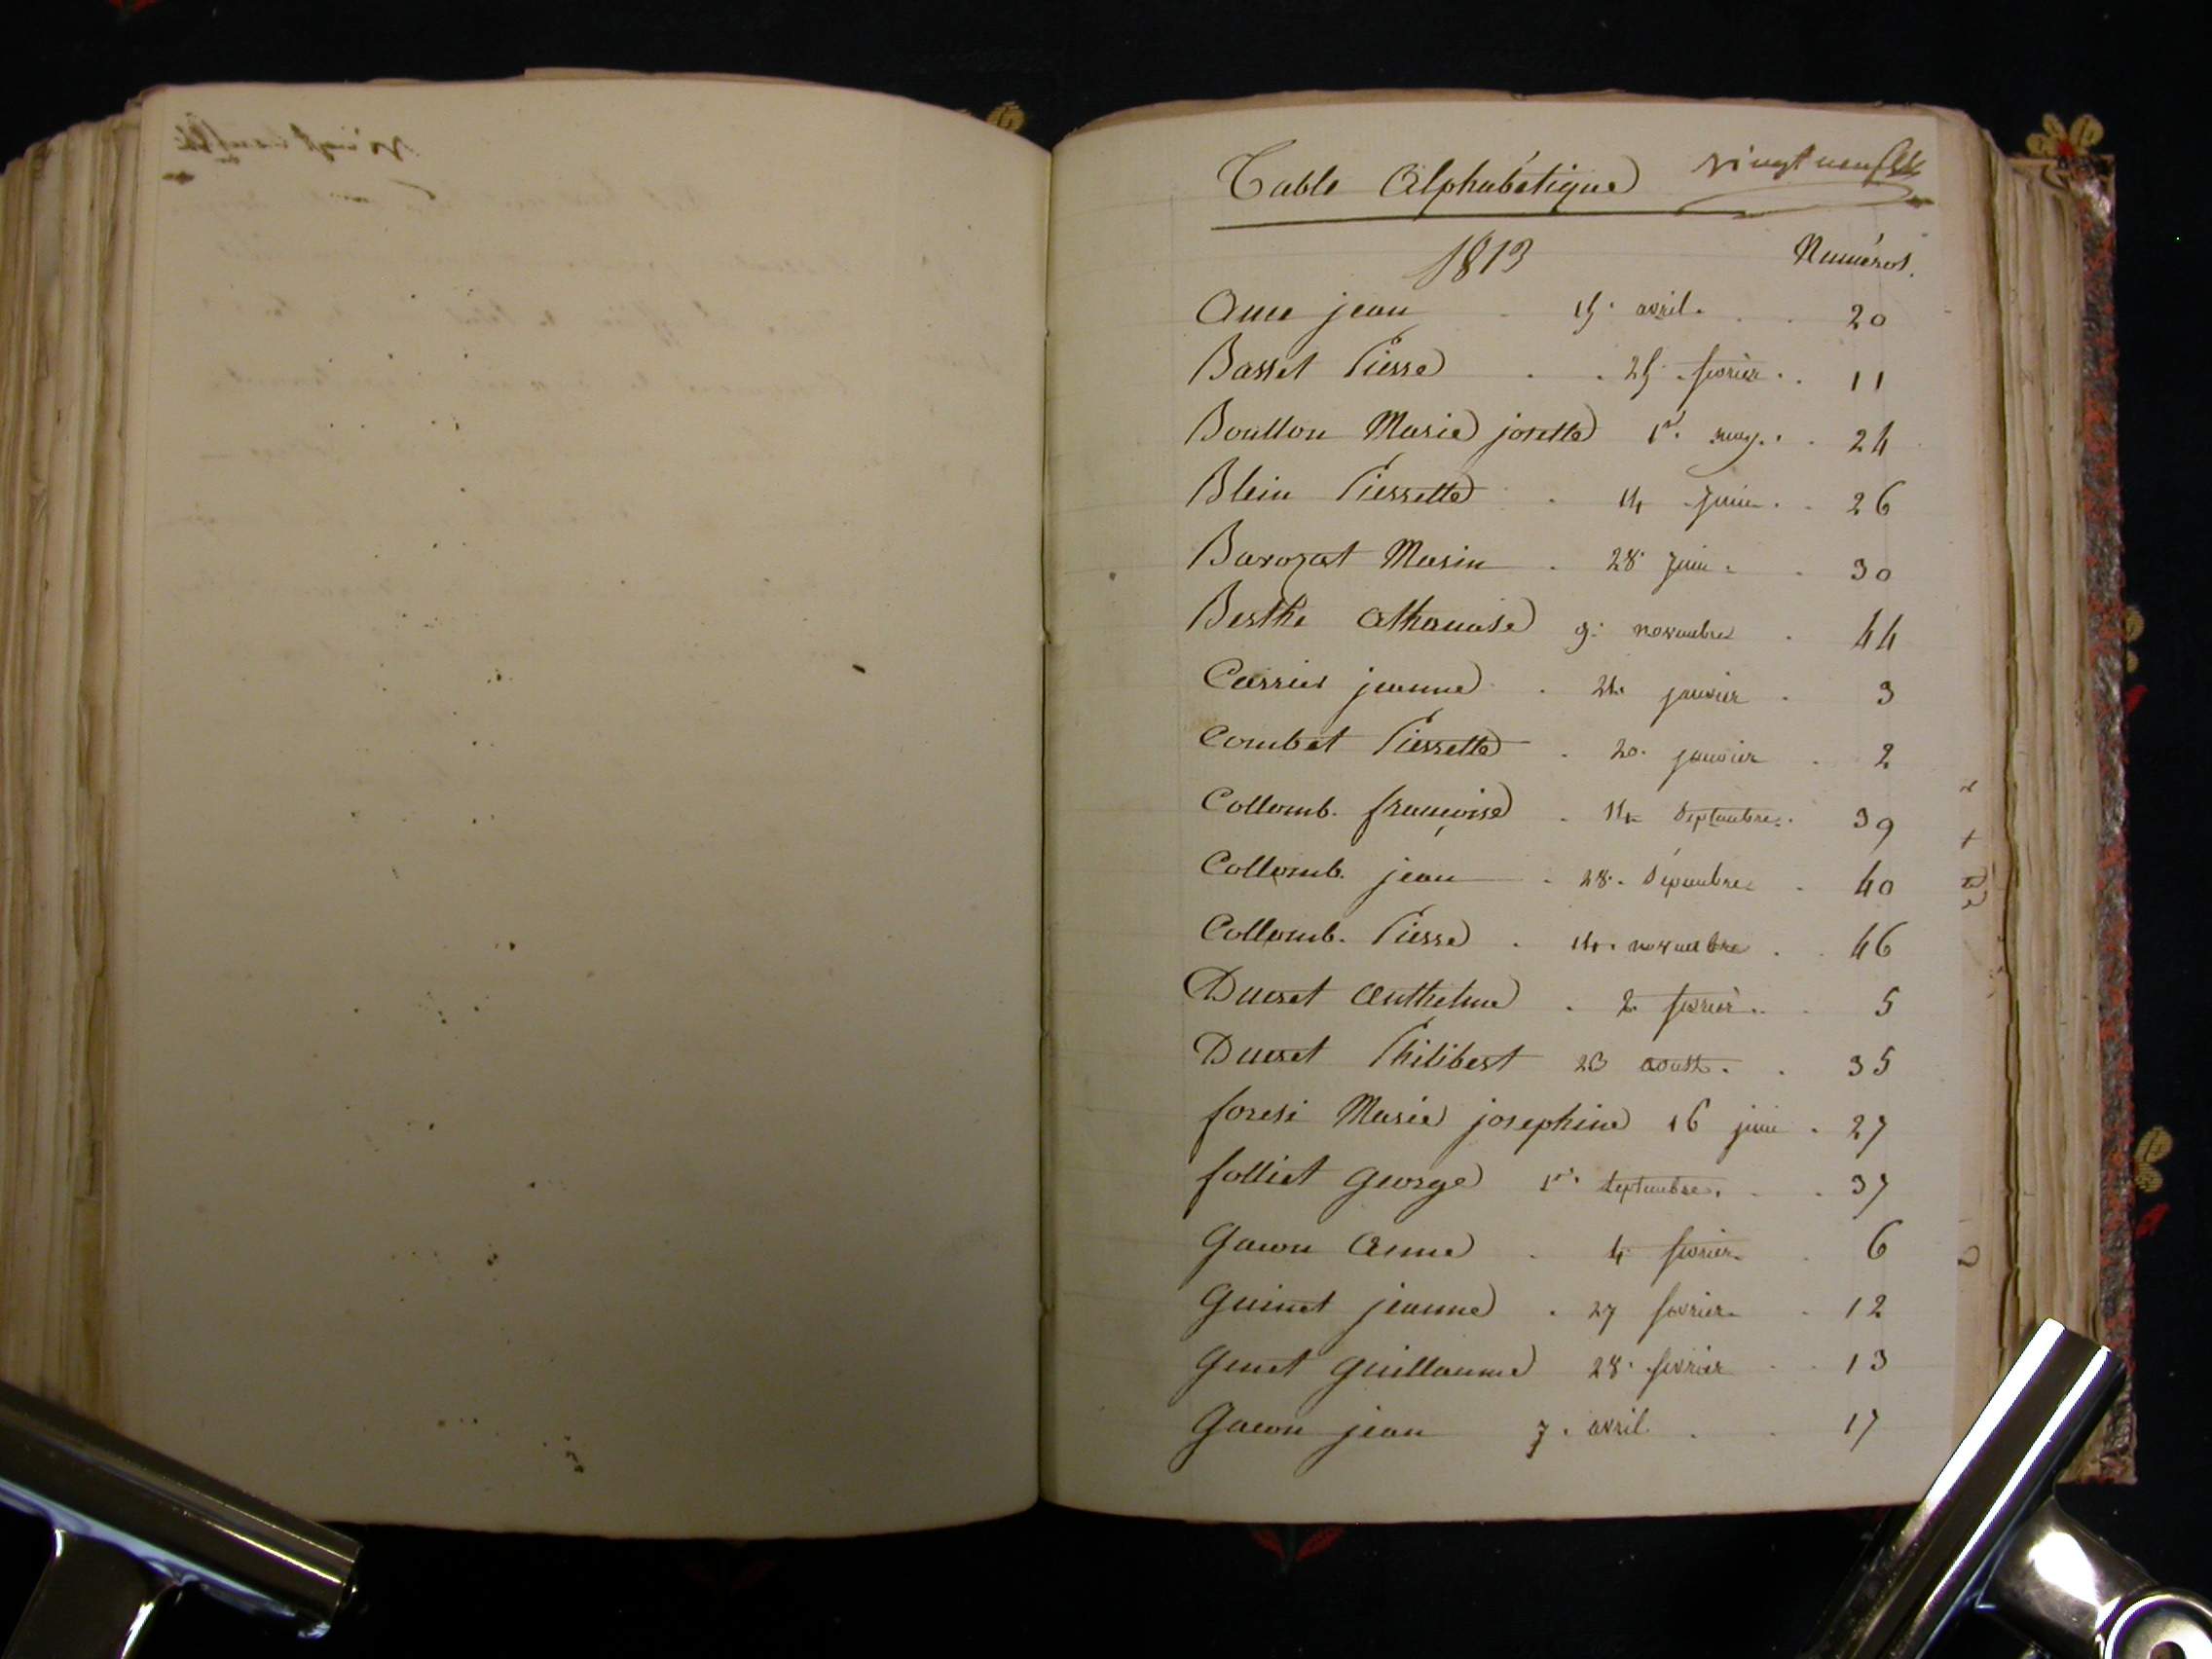 Table Alphabétique vingt neuf
1813 Numéros.
Ame jean 15. avril. 20
Basset Pierre 25. fevrier. 11
Boullon Marie josette 1er. may. 24
Blein Pierrette 14 juin. 26
Barozat Marin 28. juin. 30
Berthe Athanase 9. novembre 44
Carrier jeanne 21. janvier 3
Combet Pierrette 20. janvier 2
Collomb. françoise 14 Septembre. 39
Collomb. jean 28. 40
Collomb. Pierre 14. novembre 46
Ducret Anthelme 2 fevrier. 5
Ducret Philibert 23 aoust. 35
foresi Marie josephine 16 juin 27
folliet george 1er. septembre. 37
gacon Anne 4 fevrier 6
guinet jeanne 27 fevrier 12
genet guillaume 28. fevrier 13
gacon jean 7. avril. 17